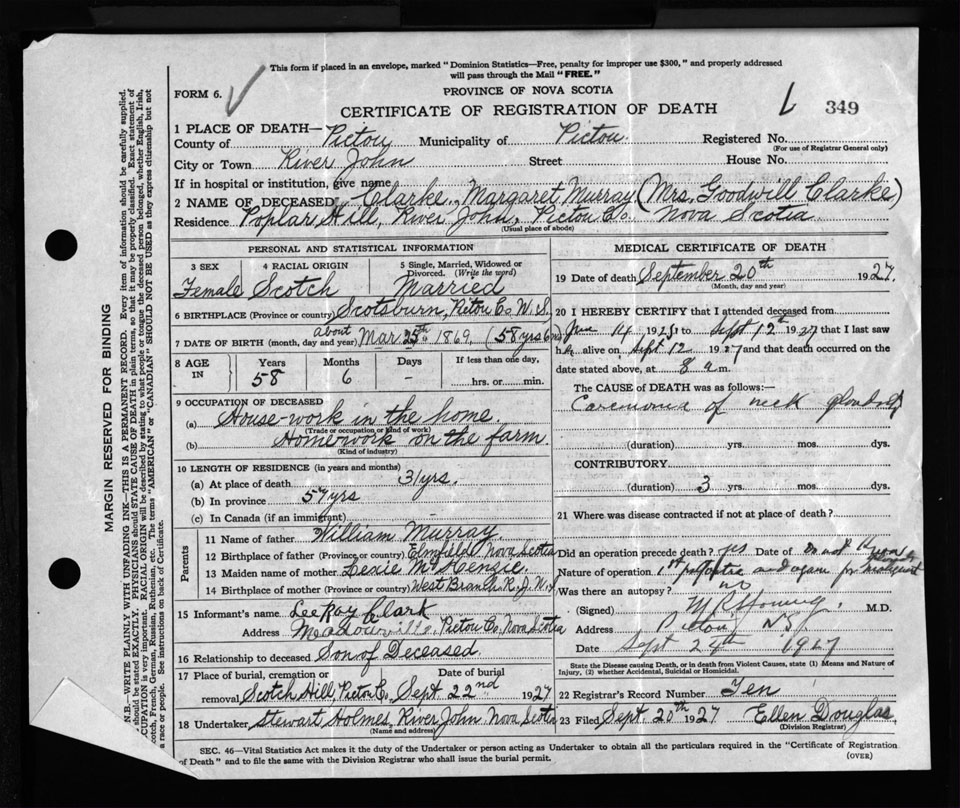 This form if placed in an envelope, marked "Dominion Statistics—Free, penalty for improper use $300," and properly addressed
will pass through the Mail "FREE."
FORM 6.
PROVINCE OF NOVA SCOTIA
CERTIFICATE OF REGISTRATION OF DEATH
L 349
1 PLACE OF DEATH—
County of Pictou Municipality of Pictou Registered No.
(For use of Registrar General only)
City or Town River John Street House No.
If in hospital or institution, give name
2 NAME OF DECEASED Clarke, Margaret Murray (Mrs. Goodwill Clarke)
Residence Poplar Hill, River John, Pictou Co. Nova Scotia
(Usual place of abode)
PERSONAL AND STATISTICAL INFORMATION
3 SEX 4 RACIAL ORIGIN 5 Single, Married, Widowed or
Divorced. (Write the word)
Female Scotch Married
6 BIRTHPLACE (Province or country) Scotsburn, Pictou Co. N.S.
7 DATE OF BIRTH (month, day and year) about Mar. 25th 1869, (58 yrs 6m)
8 AGE IN Years Months Days If less than one day,
58 6 - hrs. or min.
9 OCCUPATION OF DECEASED
(a) House-work in the home.
(Trade or occupation or kind of work)
(b) Homework on the farm.
(Kind of industry)
10 LENGTH OF RESIDENCE (in years and months)
(a) At place of death 31 yrs.
(b) In province 57 yrs
(c) In Canada (if an immigrant) -
Parents
11 Name of father William Murray
12 Birthplace of father (Province or country) Elmfield Nova Scotia
13 Maiden name of mother Lexie McKenzie
14 Birthplace of mother (Province or country) West Branch R.J. N.S
15 Informant's name LeeRoy Clark
Address Meadowville, Pictou Co, Nova Scotia
16 Relationship to deceased Son of Deceased.
17 Place of burial, cremation or Date of burial
removal Scotch Hill, Pictou Co, Sept 22nd 1927
18 Undertaker Stewart Holmes, River John Nova Scotia
(Name and address)
MEDICAL CERTIFICATE OF DEATH
19 Date of death September 20th 1927.
(Month, day and year)
20 I HEREBY CERTIFY that I attended deceased from
June 14 to Sept 12th 1927 that I last saw
her alive on Sept 12 1927 and that death occurred on the
date stated above, at 8 a m.
The CAUSE of DEATH was as follows:—
Carcinoma of neck glands
(duration) yrs. mos. dys.
CONTRIBUTORY
(duration) 3 yrs. mos. dys.
21 Where was disease contracted if not at place of death?
Did an operation precede death? yes Date of Do not know
Nature of operation 1st and again for malignant
Was there an autopsy? no
(Signed) M.D.
Address Pictou NS
Date Sept 29th 1927
State the Disease causing Death, or in death from Violent Causes, state (1) Means and Nature of
Injury, (2) whether Accidental, Suicidal or Homicidal.
22 Registrar's Record Number Ten
23 Filed Sept 20th 1927 Ellen Douglas
(Division Registrar)
SEC. 46—Vital Statistics Act makes it the duty of the Undertaker or person acting as Undertaker to obtain all the particulars required in the "Certificate of Registration
of Death" and to file the same with the Division Registrar who shall issue the burial permit.
(OVER)
MARGIN RESERVED FOR BINDING
N.B.—WRITE PLAINLY WITH UNFADING INK—THIS IS A PERMANENT RECORD. Every item of information should be carefully supplied.
should be stated EXACTLY. PHYSICIANS should STATE CAUSE OF DEATH in plain terms, so that it may be properly classified. Exact statement of
CUPATION is very important. RACIAL ORIGIN will be described by stating to what people or tongue the deceased person belonged, whether English, Irish,
cotch, French, German, Russian, Ruthenian, etc. The terms "AMERICAN" or "CANADIAN" SHOULD NOT BE USED as they express citizenship but not
a race or people. See instructions on back of Certificate.